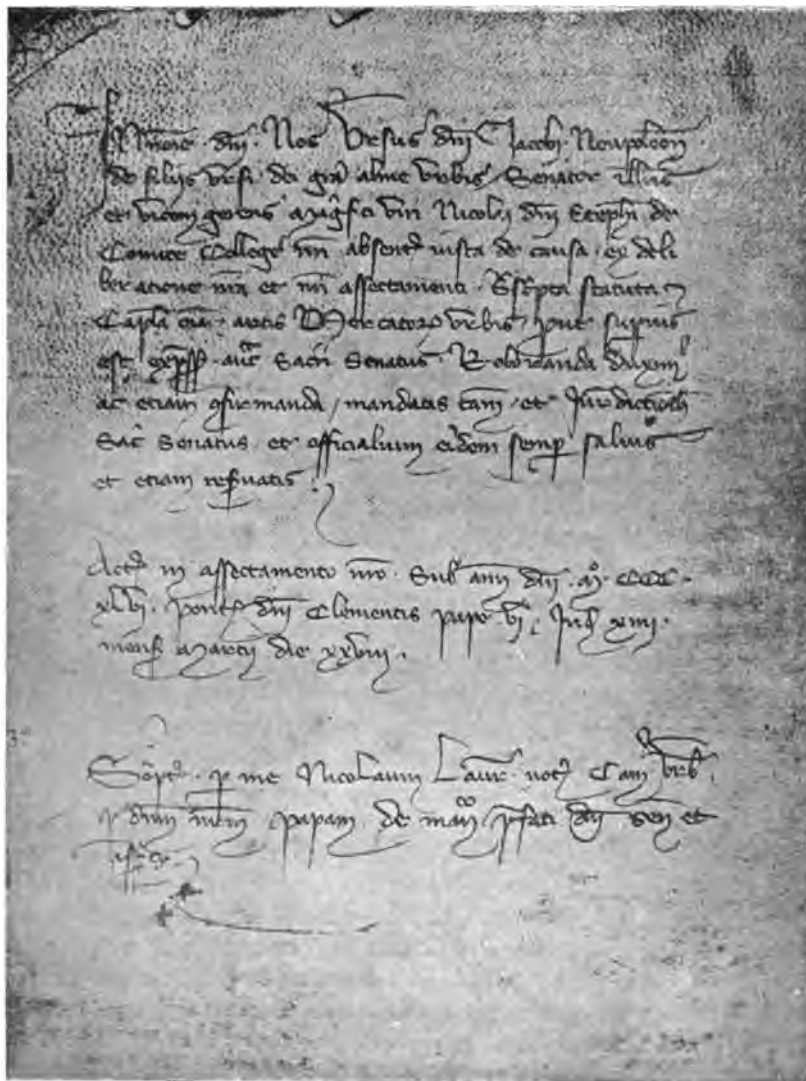 In noie · dni · Nos Ursus dni Jacobi Neapoleon
de filijs ursi dei gra alme urbis Senator illus
et vicem gerens magfici viri Nicolai dni Stephi de
Comite College nri absent iusta de causa · ex deli
beratione nra et nri assectamenti · Sscpta statuta
Capla oia · artis Mercator urbis · put supius
est exp auc Sacri Senatus · Roboranda duximus
ac etiam cfirmanda / mandatis tam · et Jurdiction
Sac Senatus · et officialium eidem semp salvis
et etiam resvatis ·
Act in assectamento nro · Sub ann dni · m · CCC ·
xlvi · pont dni Clementis pape vi · Ind xiiii ·
mens martij die xxviii ·
Scpt · p me Nicolaum Laur · not Cam urb ·
p dnm nrm papam de man pfati dni sen et